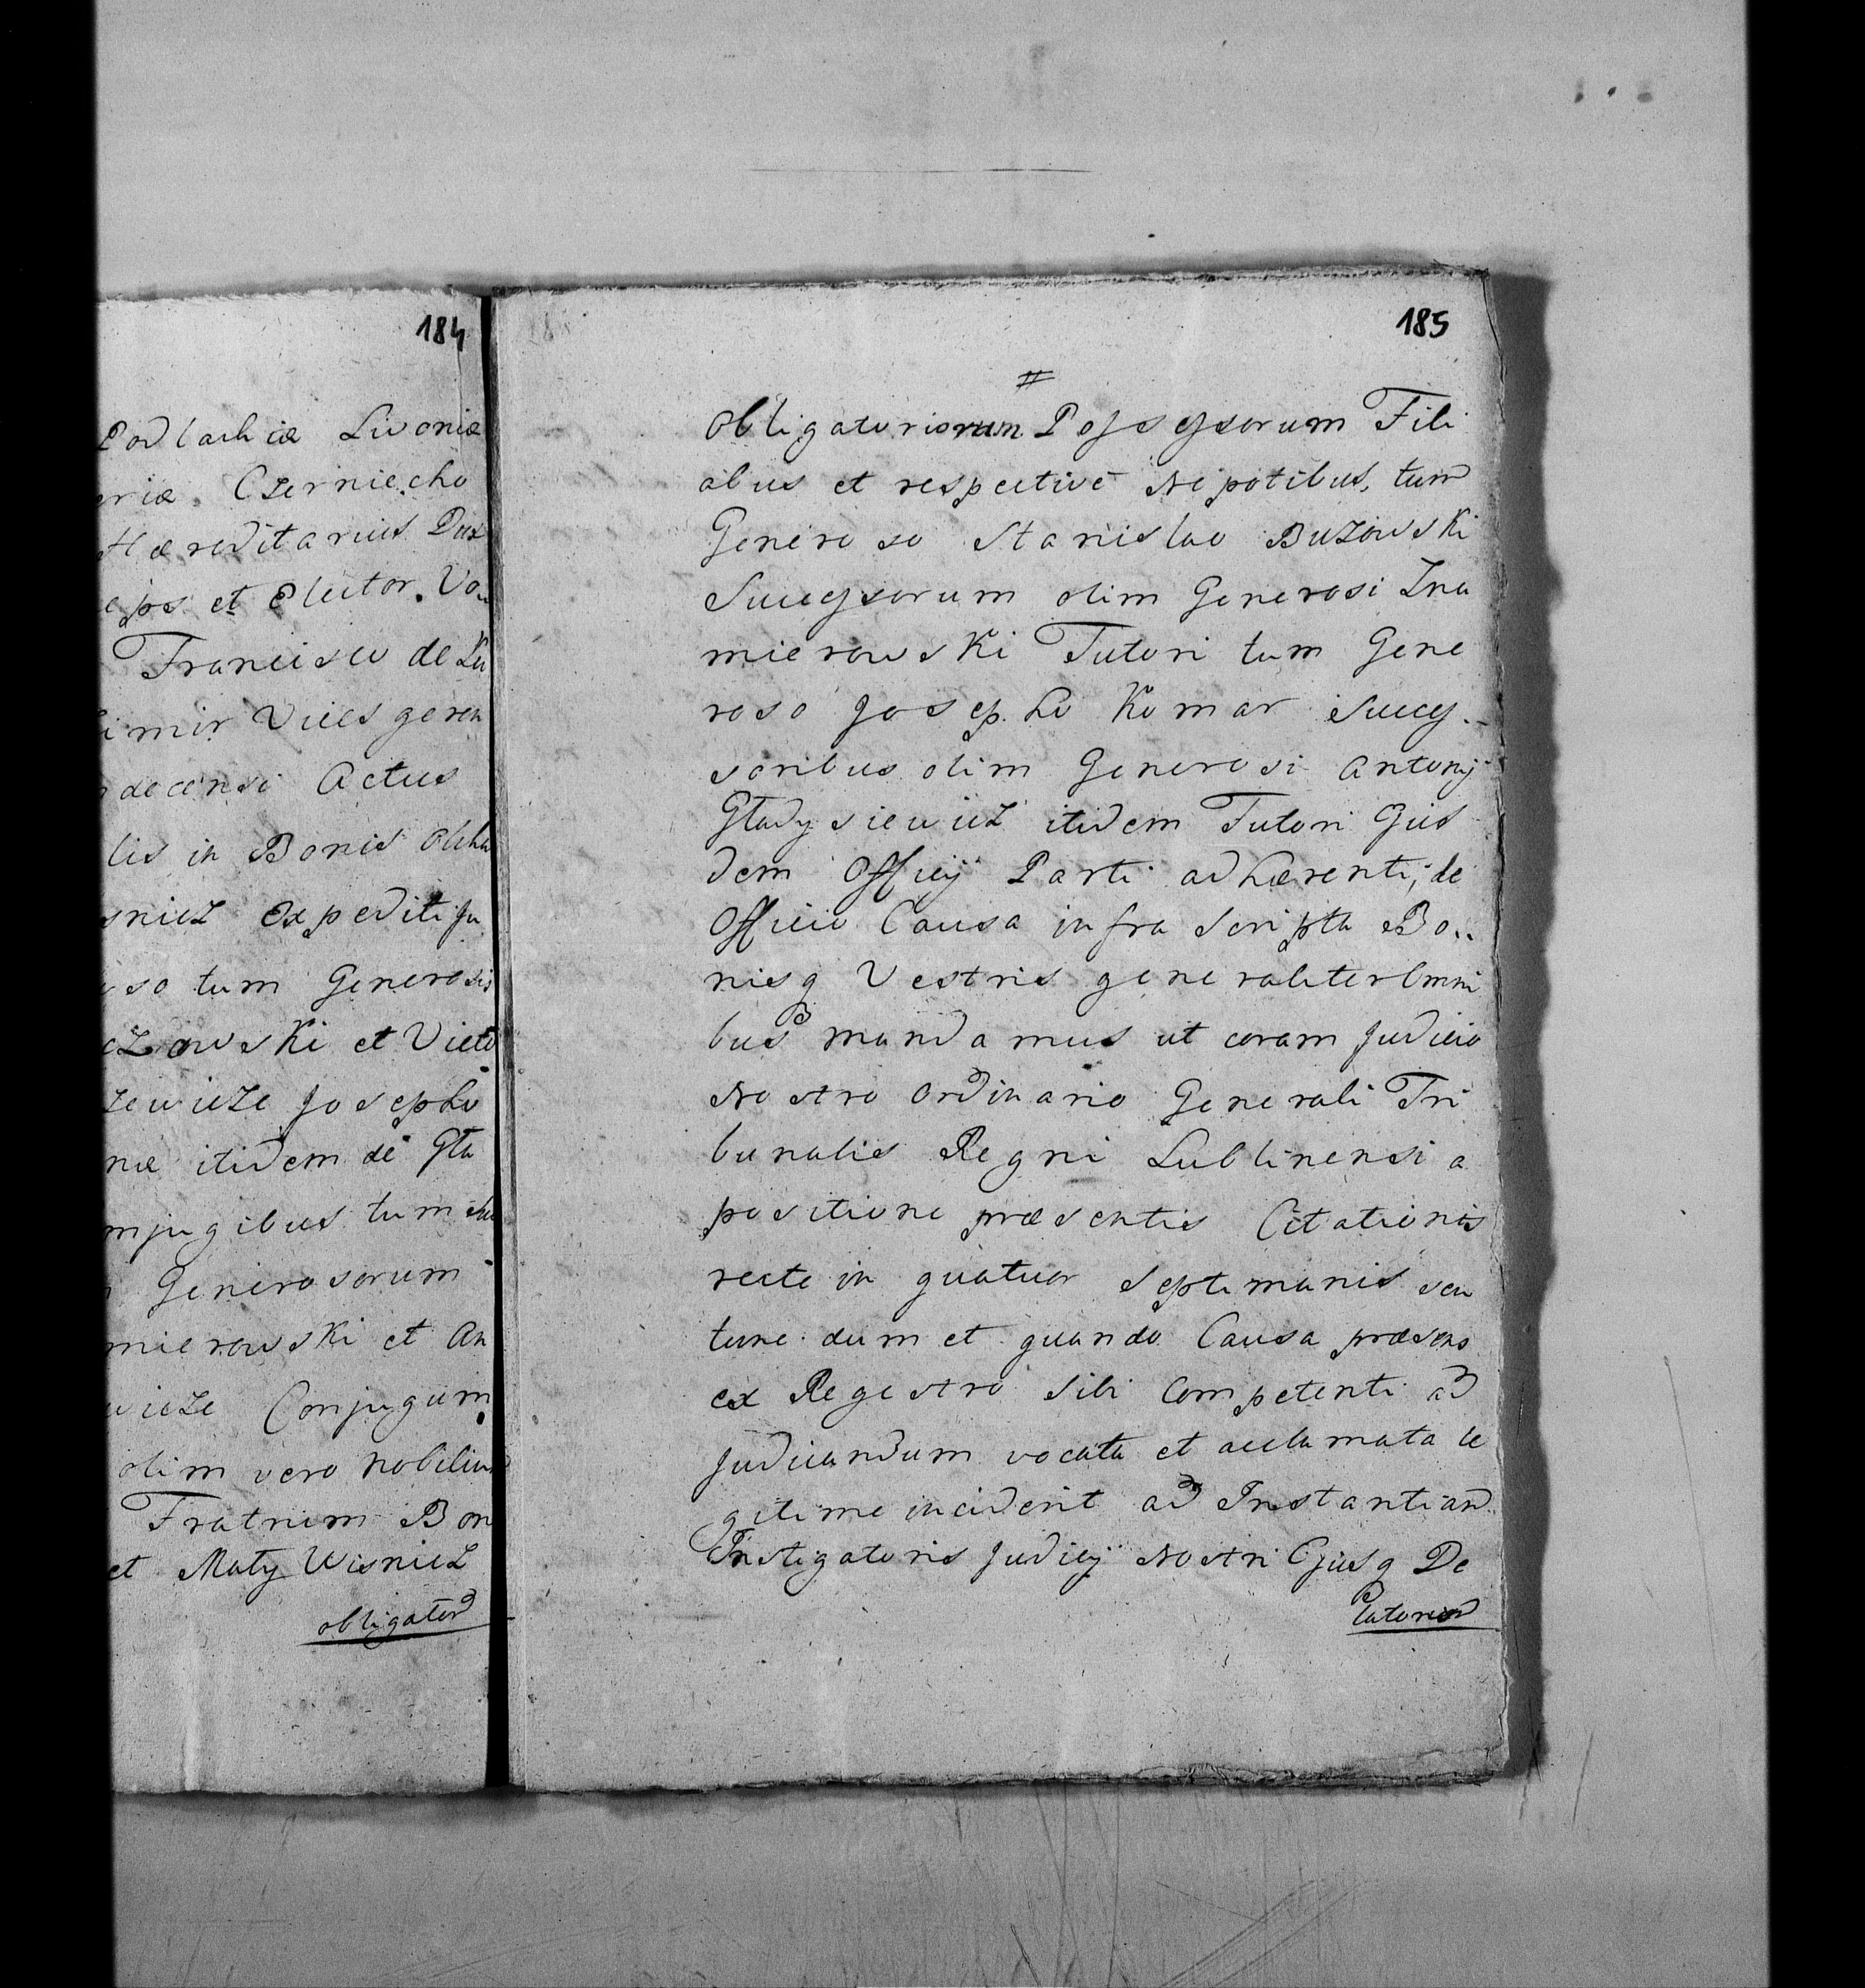 184
Podlachiæ Livoniæ
eriæ. Czerniecho
Hæreditarius Dux
eps et Elector. Vo
Francisco de Lu
imir Vices geren
decensi Actus
lis in Bonis Olcha
snicz Expediti Ju
so tum Generosis
czowski et Victo
zewicze Josepho
næ itidem de Gła
mjugibus tum Su
Generosorum
mierowski et An
wicze Conjugum
olim vero Nobilium
Fratrum Bon
et Maty Wisnicz
obligator
185
#
Obligatoriorum Possessorum Fili
abus et respective Nepotibus, tum
Generoso Stanislao Buzowski
Successorum olim Generosi Zna
mierowski Tutori tum Gene
roso Josepho Komar Succes-
soribus olim Generosi Antonij
Gładysiewicz itidem Tutori Ejus
dem Officij Parti adhærenti, de
Officio Causa infra Scripta Bo..
nisq Vestris generaliter Omni
bus mandamus ut coram Judicio
Nostro Ordinario Generali Tri
bunalis Regni Lublinensi a
positione præsentis Citationis
recte in quatuor Septimanis seu
tunc dum et quando Causa præsens
ex Regestro Sibi Competenti ad
Judicandum vocata et acclamata le
gitime inciderit ad Instantiam
Instigatoris Judicij Nostri Ejusq De
latorum